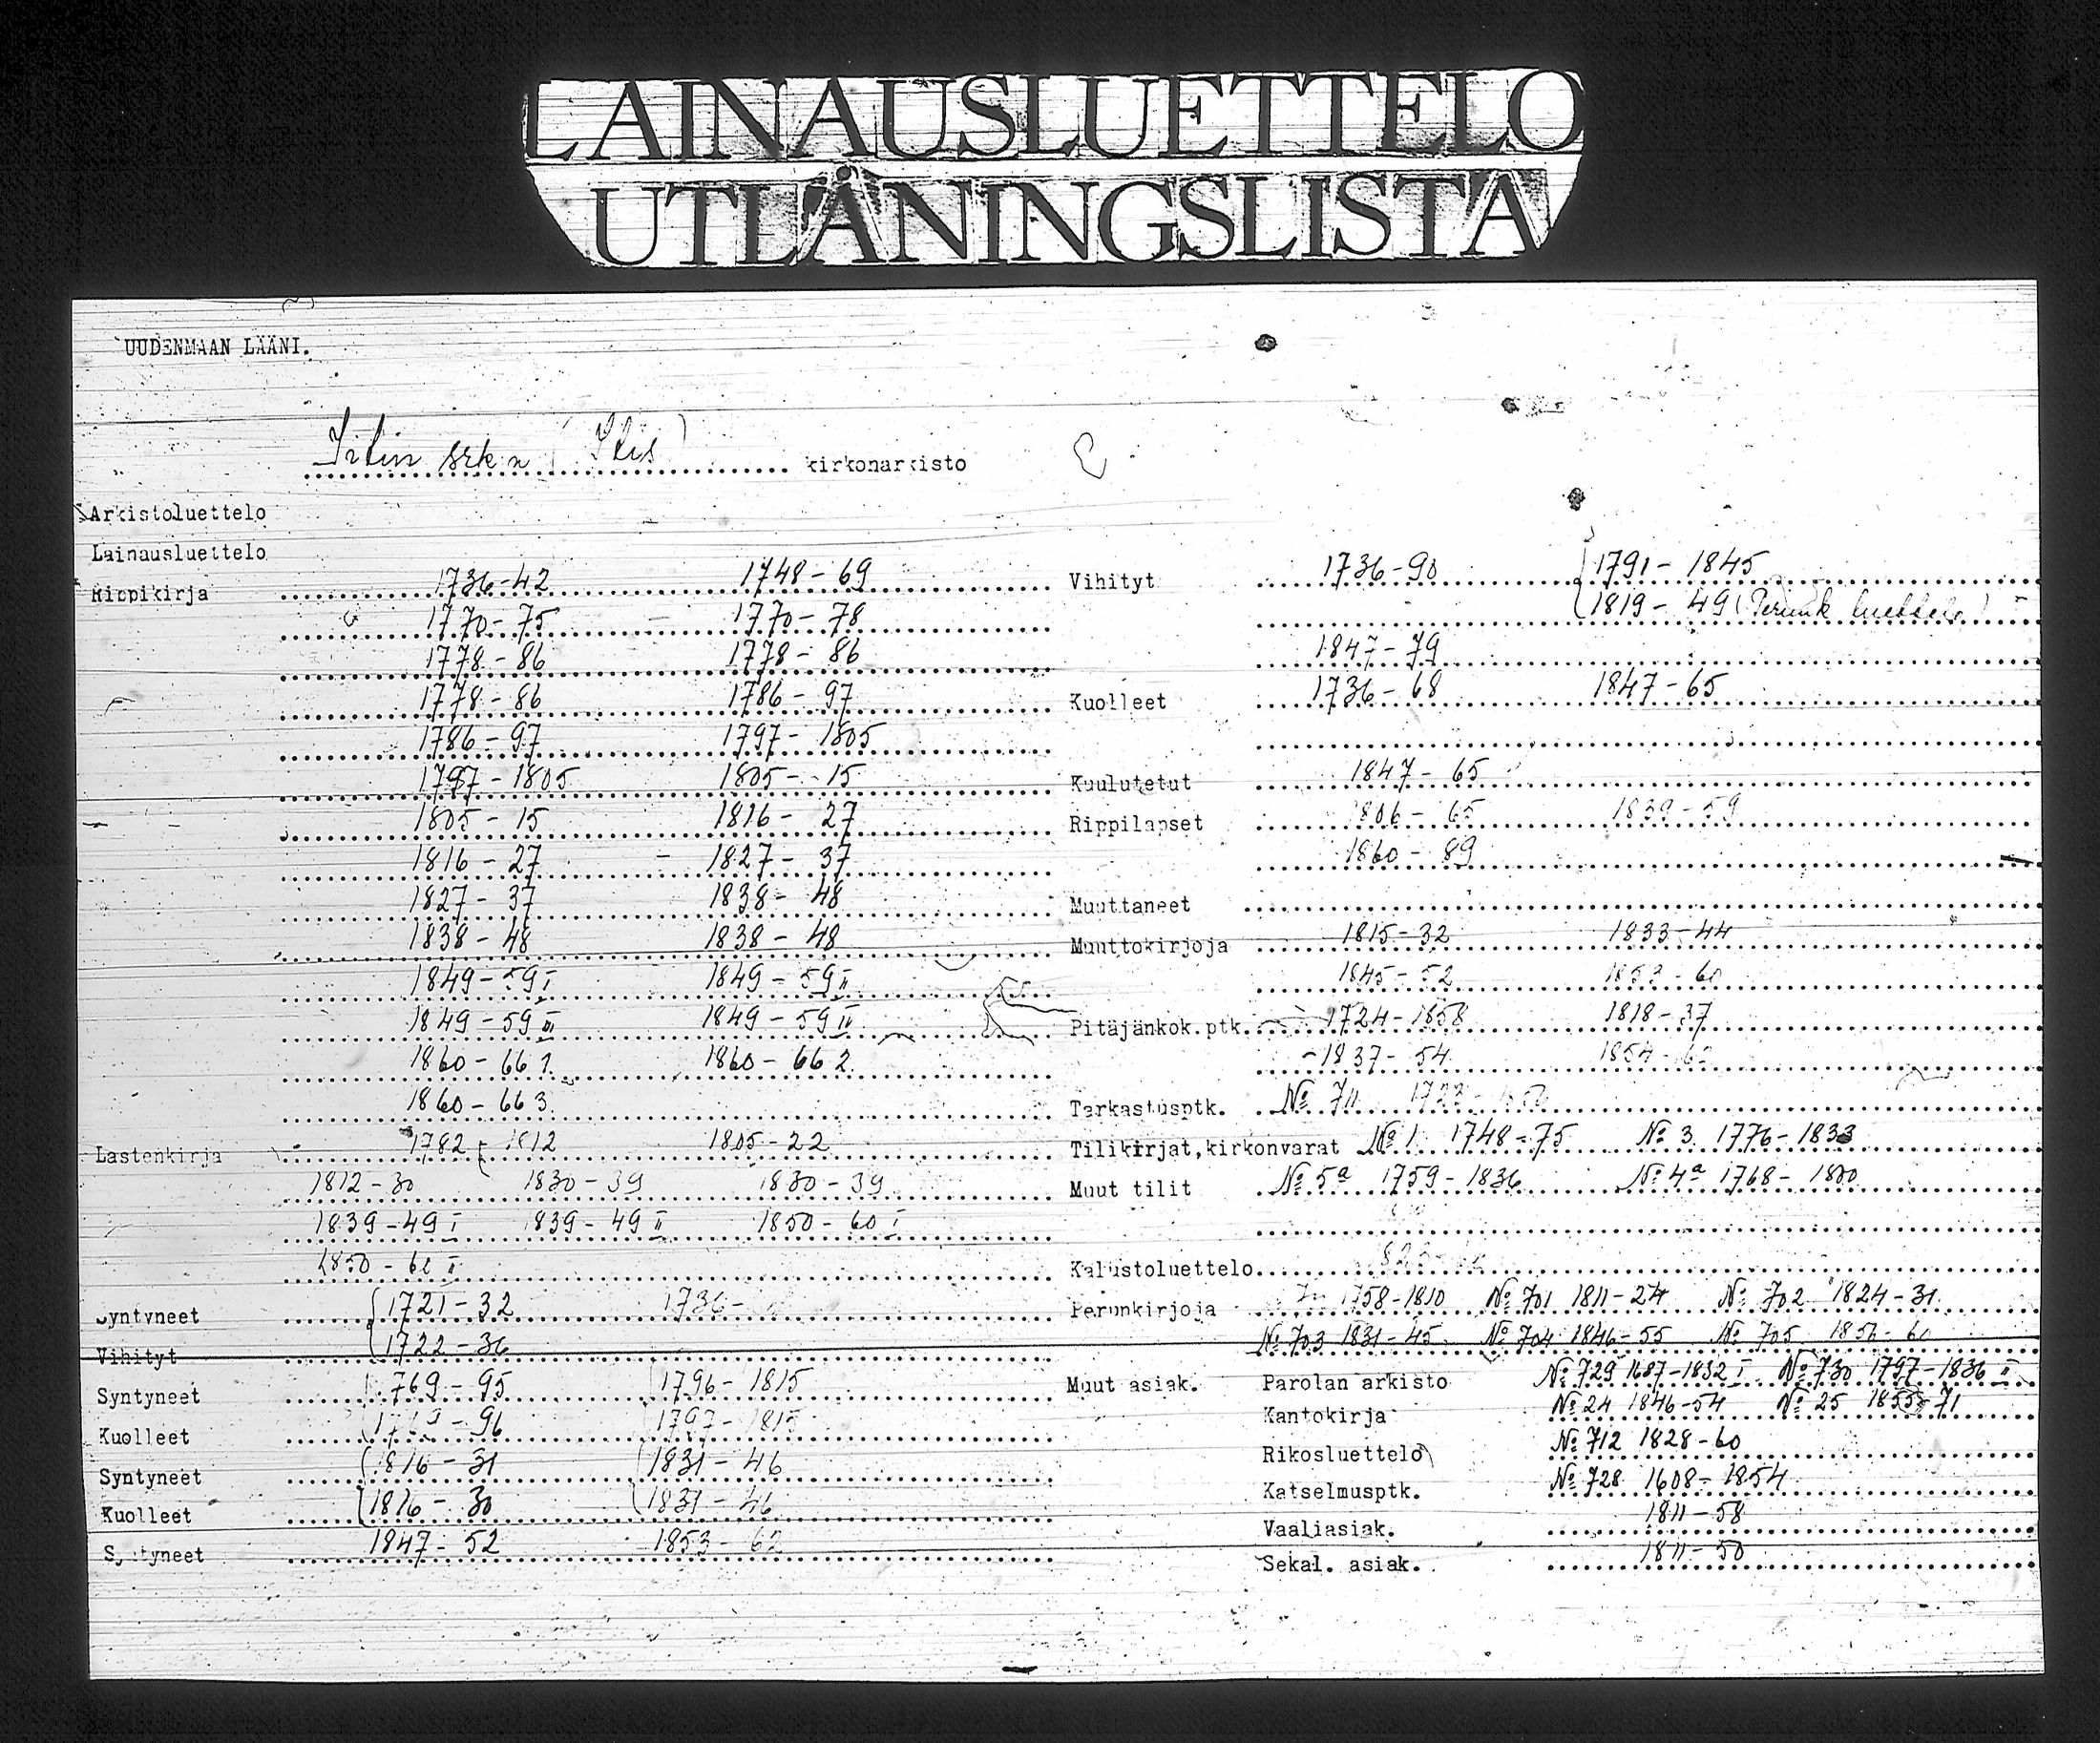 LAINAUSLUETTELO
UTLÅNINGSLISTA
UUDENMAAN LÄÄNI.
Iitin srk:n (Itis) kirkonarkisto
Arkistoluettelo
Lainausluettelo
Rippikirja 1736-42 1748-69
1770-75 1770-78
1778-86 1778-86
1778-86 1786-97
1786-97 1797-1805
1797-1805 1805-15
1805-15 1816-27
1816-27 1827-37
1827-37 1838-48
1838-48 1838-48
1849-59 I 1849-59 II
1849-59 III 1849-59 IV
1860-66 1. 1860-66 2.
1860-66 3.
Lastenkirja 1782-1812 1805-22
1812-30 1830-39 1830-39
1839-49 I 1839-49 II 1850-60 I
1850-60 II
Syntyneet 1721-32 1736-
Vihityt 1722-36
Syntyneet 1769-95 1796-1815
Kuolleet -96 1797-1815
Syntyneet 1816-31 1831-46
Kuolleet 1816-30 1831-46
Syntyneet 1847-52 1853-62
Vihityt 1736-90 1791-1845
1819-49 ( luettelo)
1847-79
Kuolleet 1736-68 1847-65
Kuulutetut 1847-65
Rippilapset 1806-65 1839-59
1860-89
Muuttaneet
Muuttokirjoja 1815-32 1833-44
1845-52 1853-60
Pitäjänkok.ptk. 1724-1858 1818-37
1837-54 1854-
Tarkastusptk. No 711
Tilikirjat,kirkonvarat No 1. 1748-75 No 3. 1776-1833
Muut tilit No 5a 1759-1836 No 4a 1768-1800
Kalustoluettelo
Perunkirjoja 1758-1810 No 701 1811-24 No 702 1824-31
No 703 1831-45 No 704 1846-55 No 705 1856-60
Muut asiak. Parolan arkisto No 729 1687-1832 I No 730 1797-1836 II
Kantokirja No 24 1846-54 No 25 1855-71
Rikosluettelo No 712 1828-60
Katselmusptk. No 728 1608-1854
Vaaliasiak. 1811-58
Sekal. asiak. 1811-50